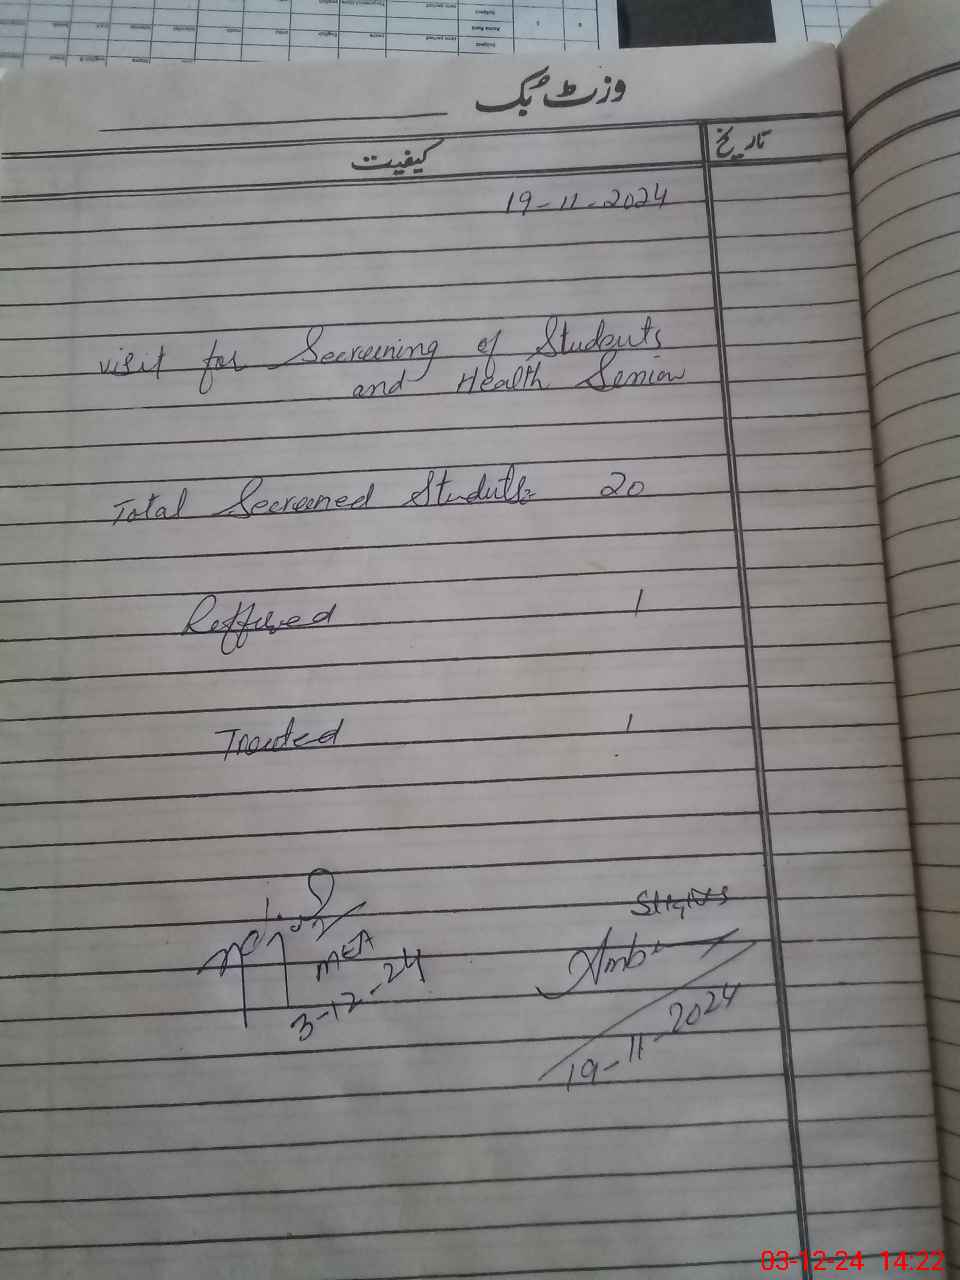 وزٹ بُک
تاریخ
کیفیت
19-11-2024
visit for Secreening of Students
and Health Senion
Total Secreened Students 20
Reffered 1
Treated 1
MEA
3-12-24
19-11-2024
03-12-24 14:22